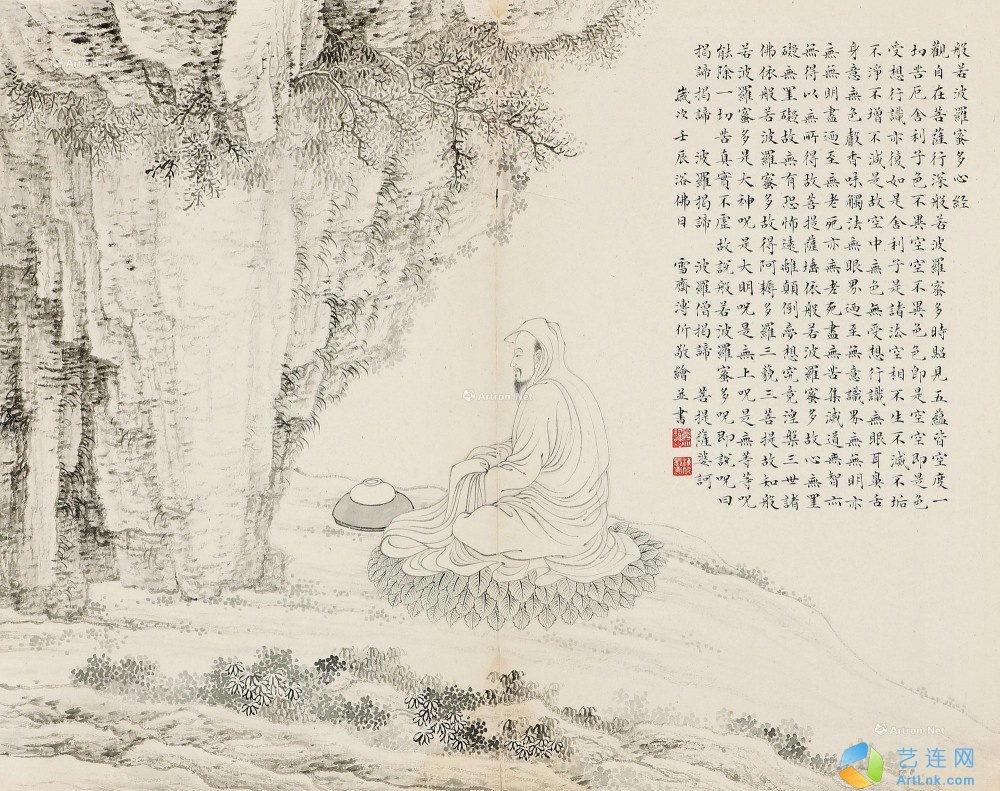 般若波羅蜜多心經
觀自在菩薩行深般若波羅蜜多時照見五蘊皆空度一
切苦厄舍利子色不異空空不異色色即是空空即是色
受想行識亦復如是舍利子是諸法空相不生不滅不垢
不淨不增不減是故空中無色無受想行識無眼耳鼻舌
身意無色聲香味觸法無眼界迺至無意識界無無明亦
無無明盡迺至無老死亦無老死盡無苦集滅道無智亦
無得以無所得故菩提薩埵依般若波羅蜜多故心無罣
礙無罣礙故無有恐怖遠離顛倒夢想究竟涅槃三世諸
佛依般若波羅蜜多故得阿耨多羅三藐三菩提故知般
若波羅蜜多是大神呪是大明呪是無上呪是無等等呪
能除一切苦真實不虛故說般若波羅蜜多呪即說呪曰
揭諦揭諦 波羅揭諦 波羅僧揭諦 菩提薩婆訶
歲次壬辰浴佛日 雪齋溥伒敬繪並書
Artron.Net
Artron.Net
Artron.Net
艺连网
ArtLnk.com